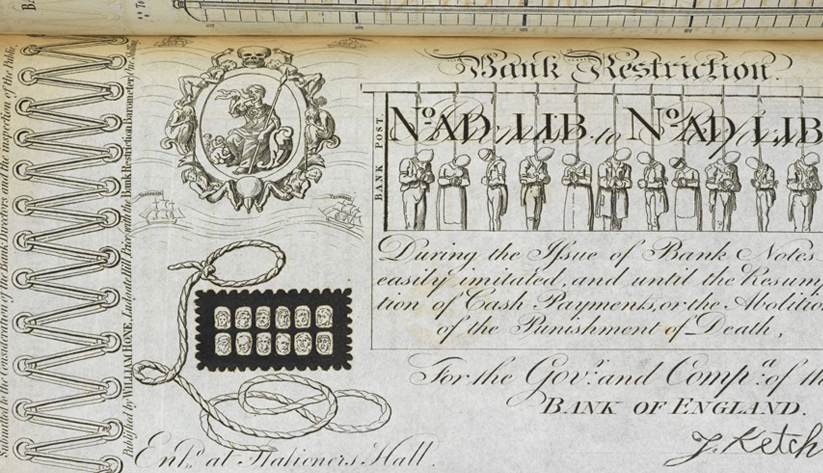 Submitted to the Consideration of the Bank Directors and the inspection of the Public.
Published by WILLIAM HONE, Ludgate Hill, Price with the Bank Restriction Barometer, One Shilling
Bank Restriction.
BANK POST.
No. AD. LIB. to No. AD. LIB
During the Issue of Bank Notes
easily imitated, and until the Resump
tion of Cash Payments, or the Abolitio
of the Punishment of Death,
For the Govr. and Compa. of th
BANK OF ENGLAND.
J. Ketch
Entd. at Stationers Hall.